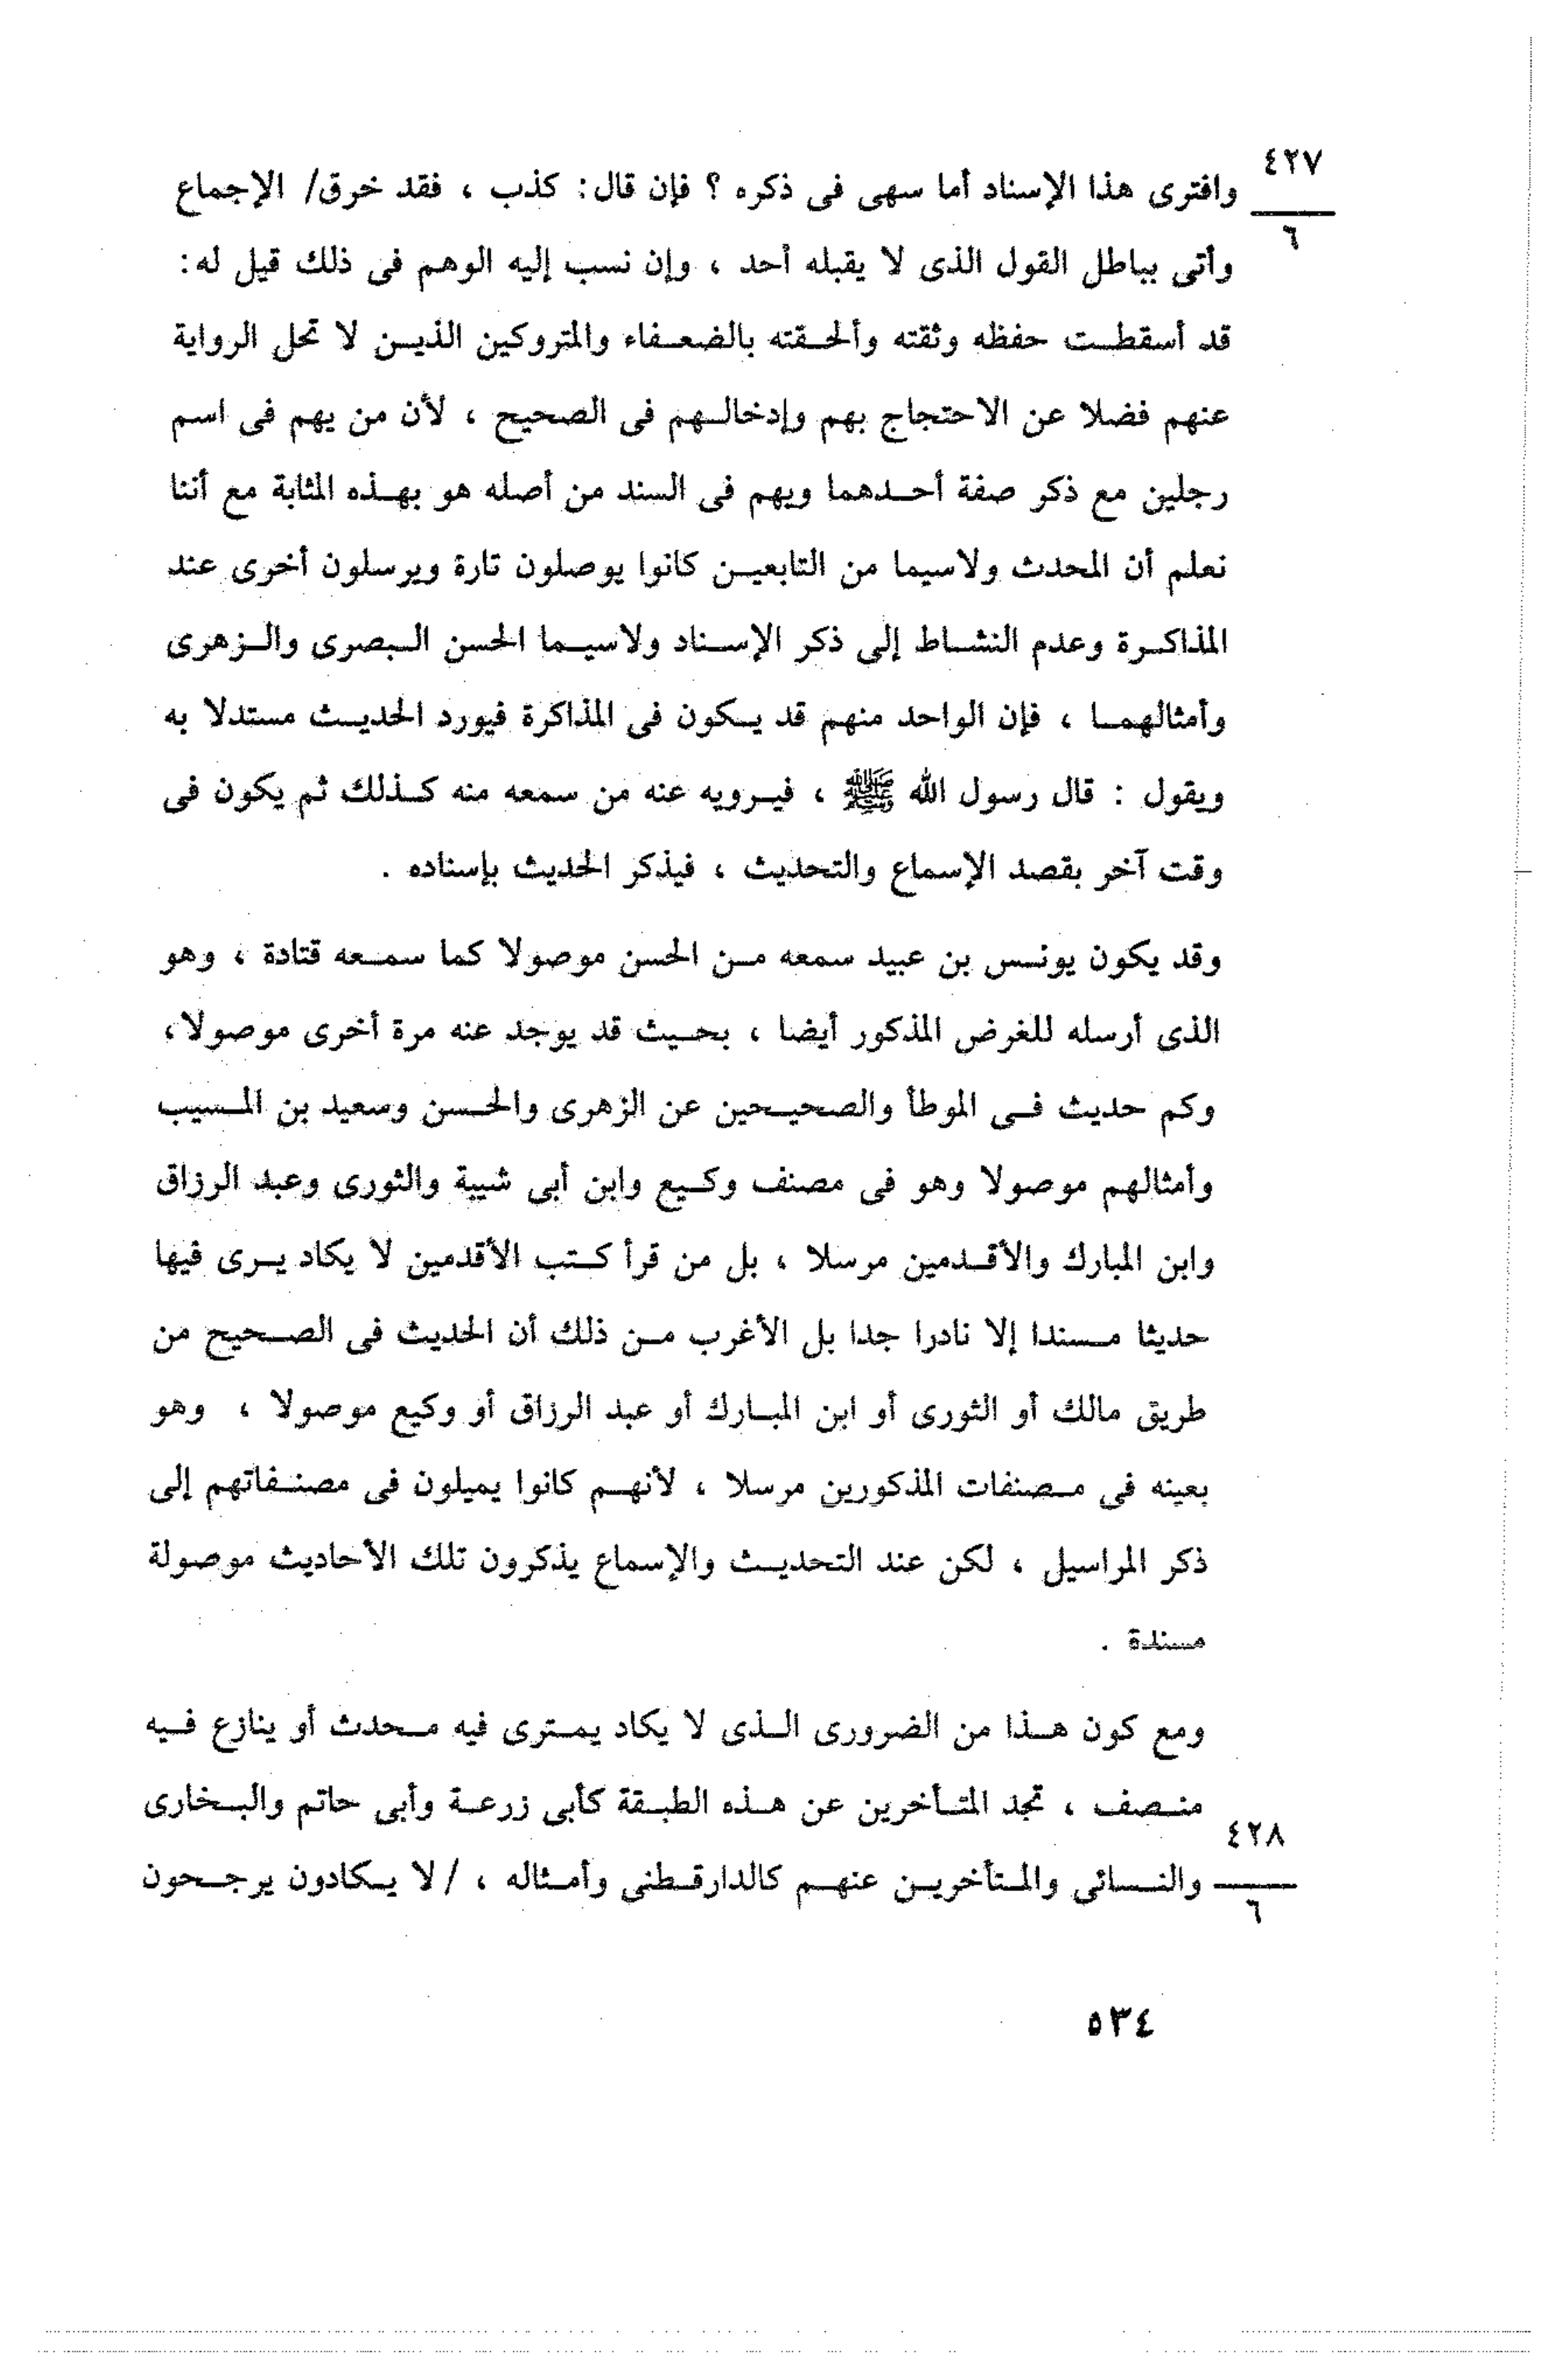 ٤٢٧
٦
وافترى هذا الإسناد أما سهى فى ذكره ؟ فإن قال : كذب ، فقد خرق/ الإجماع
وأتى بباطل القول الذى لا يقبله أحد ، وإن نسب إليه الوهم فى ذلك قيل له :
قد أسقطت حفظه وثقته وألحقته بالضعفاء والمتروكين الذين لا تحل الرواية
عنهم فضلا عن الاحتجاج بهم وإدخالهم فى الصحيح ، لأن من يهم فى اسم
رجلين مع ذكر صفة أحدهما ويهم فى السند من أصله هو بهذه المثابة مع أننا
نعلم أن المحدث ولاسيما من التابعين كانوا يوصلون تارة ويرسلون أخرى عند
المذاكرة وعدم النشاط إلى ذكر الإسناد ولاسيما الحسن البصرى والزهرى
وأمثالهما ، فإن الواحد منهم قد يكون فى المذاكرة فيورد الحديث مستدلا به
ويقول : قال رسول الله ﷺ ، فيرويه عنه من سمعه منه كذلك ثم يكون فى
وقت آخر بقصد الإسماع والتحديث ، فيذكر الحديث بإسناده .
وقد يكون يونس بن عبيد سمعه من الحسن موصولا كما سمعه قتادة ، وهو
الذى أرسله للغرض المذكور أيضا ، بحيث قد يوجد عنه مرة أخرى موصولا ،
وكم حديث فى الموطأ والصحيحين عن الزهرى والحسن وسعيد بن المسيب
وأمثالهم موصولا وهو فى مصنف وكيع وابن أبى شيبة والثورى وعبد الرزاق
وابن المبارك والأقدمين مرسلا ، بل من قرأ كتب الأقدمين لا يكاد يرى فيها
حديثا مسندا إلا نادرا جدا بل الأغرب من ذلك أن الحديث فى الصحيح من
طريق مالك أو الثورى أو ابن المبارك أو عبد الرزاق أو وكيع موصولا ، وهو
بعينه فى مصنفات المذكورين مرسلا ، لأنهم كانوا يميلون فى مصنفاتهم إلى
ذكر المراسيل ، لكن عند التحديث والإسماع يذكرون تلك الأحاديث موصولة
مسندة .
ومع كون هذا من الضرورى الذى لا يكاد يمترى فيه محدث أو ينازع فيه
منصف ، تجد المتأخرين عن هذه الطبقة كأبى زرعة وأبى حاتم والبخارى
٤٢٨
٦
والنسائى والمتأخرين عنهم كالدارقطنى وأمثاله ، / لا يكادون يرجحون
٥٣٤